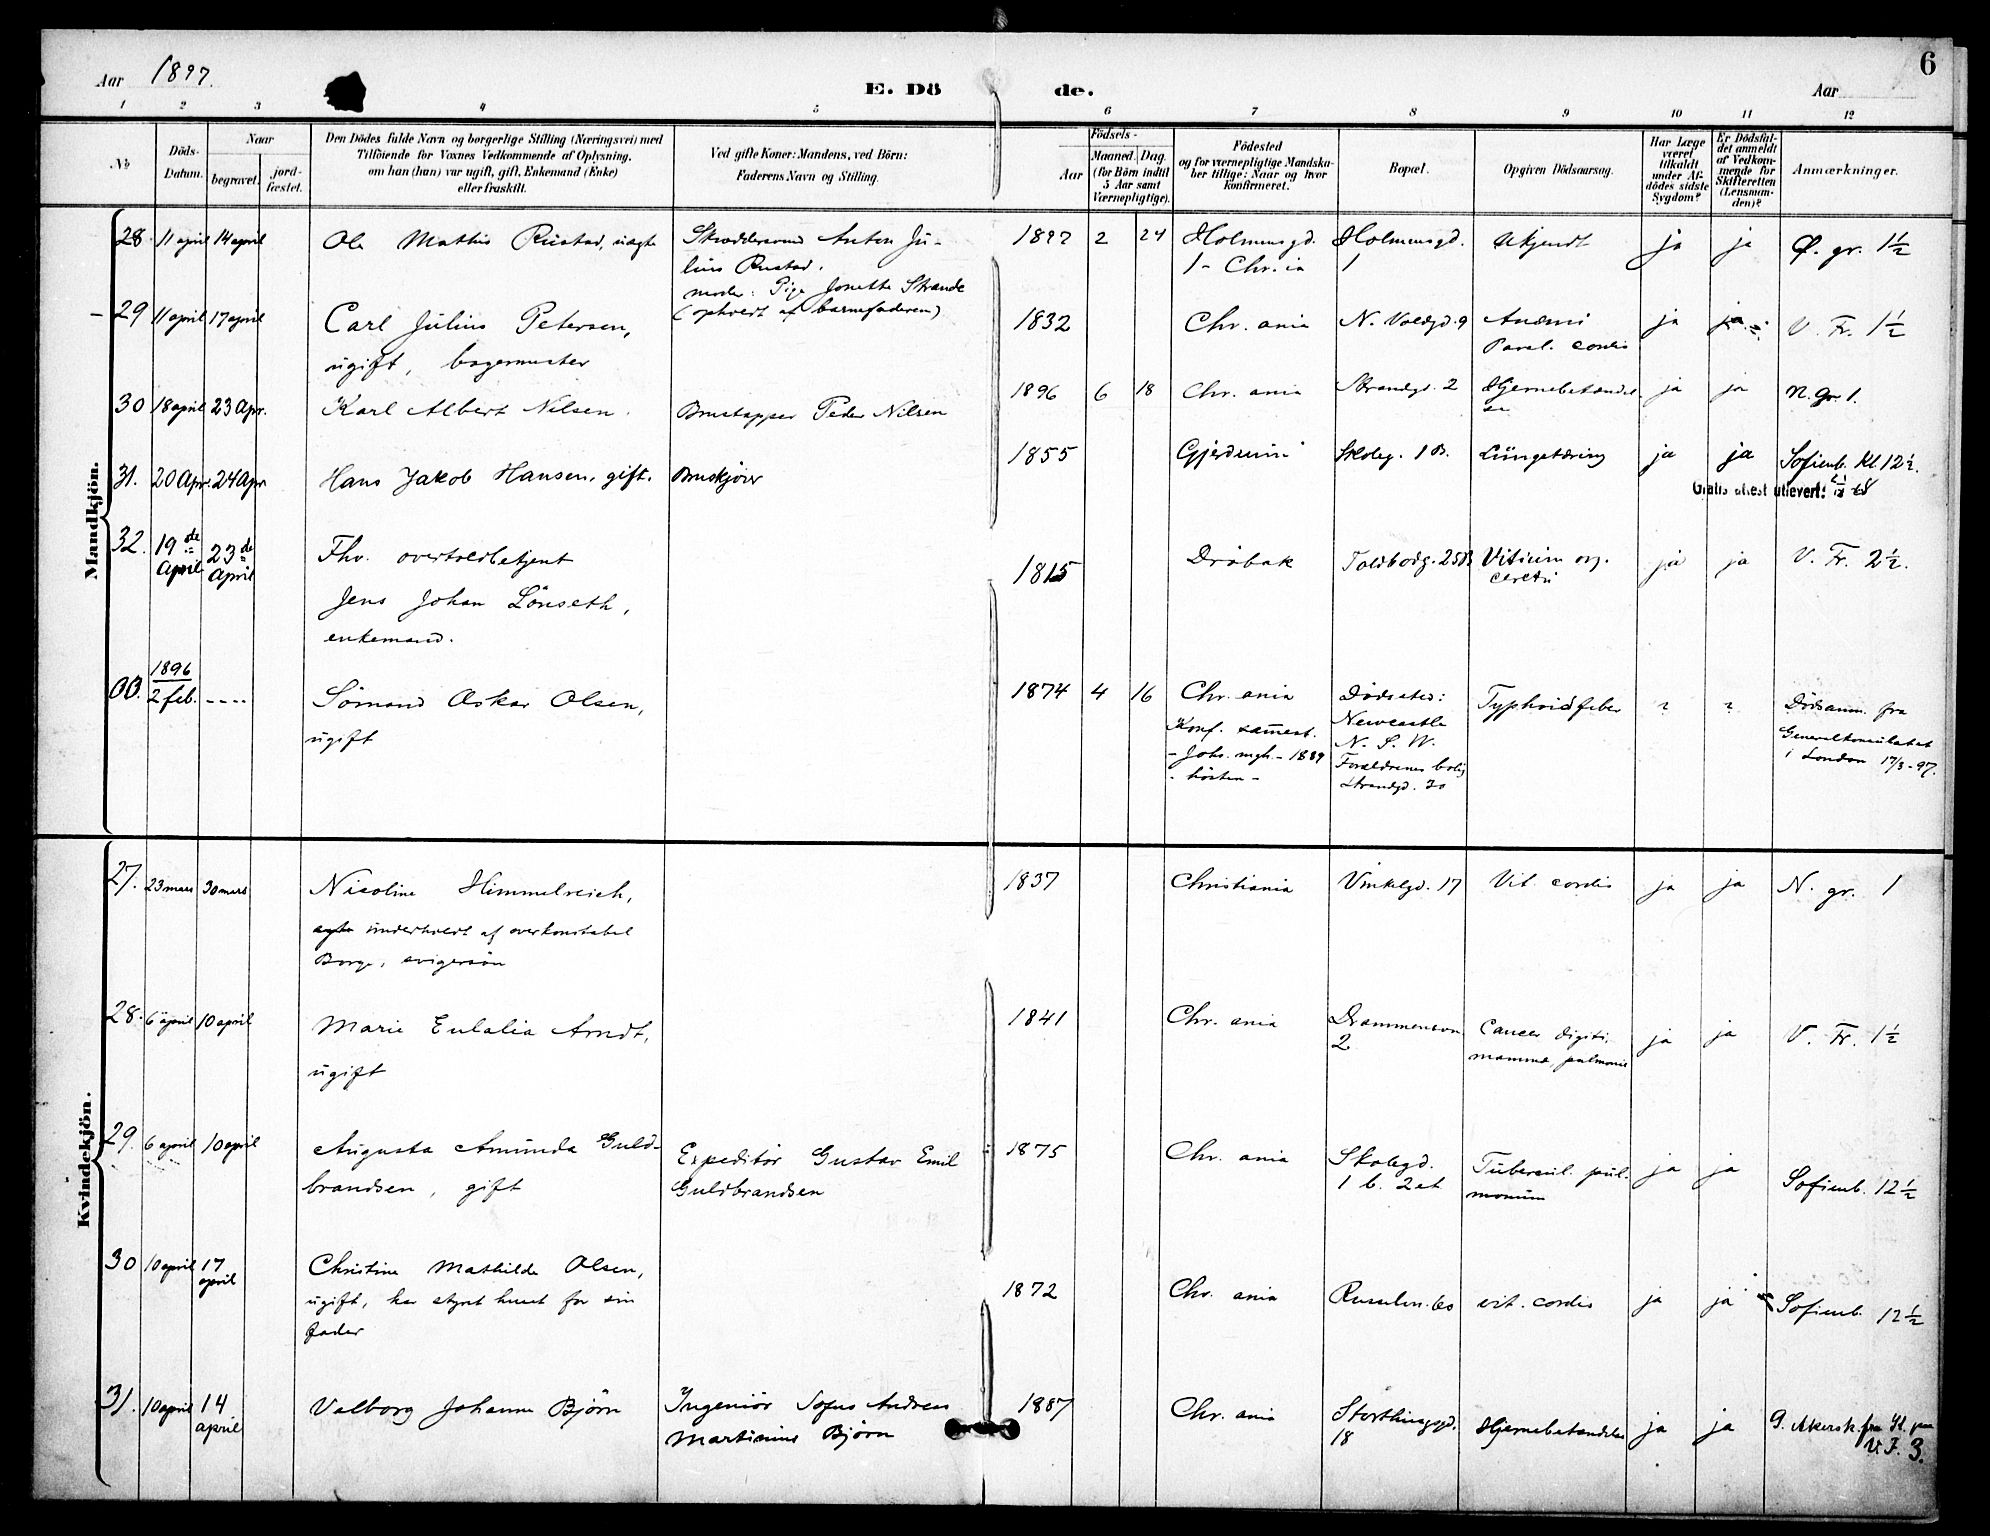 6
Aar 1897.
E. Dö de.
Aar
1 2 3 4 5 6 7 8 9 10 11 12
№
Döds-
Datum.
Naar
begravet.
jord-
fæstet.
Den Dödes fulde Navn og borgerlige Stilling (Næringsvei) med
Tilföiende for Voxnes Vedkommende af Oplysning,
om han (hun) var ugift, gift, Enkemand (Enke)
eller fraskilt.
Ved gifte Koner: Mandens, ved Börn:
Faderens Navn og Stilling.
Födsels-
Aar
Maaned. Dag.
(for Börn indtil
5 Aar samt
Værnepligtige).
Födested
og for værnepligtige Mandska-
ber tillige: Naar og hvor
konfirmeret.
Bopæl.
Opgiven Dödsaarsag.
Har Læge
været
tilkaldt
under Af-
dödes sidste
Sygdom?
Er Dödsfal-
det anmeldt
af Vedkom-
mende for
Skifteretten
(Lensman-
den)?
Anmærkninger.
Mandkjön.
28. 11 april 14 april Ole Mathis Rustad, uægte
Skræddersvend Anton Ju-
lius Rustad.
moder: Pige Jonette Strande
(ophvert af barnefaderen)
1897 2 24
Holmensgd.
1 - Chr.ia
Holmensgd.
1
Ukjendt ja ja Ø. gr. 1½
29 11 april 17 april Carl Julius Petersen,
ugift, bagermester
1832 Chr. ania N. Voldgd. 9
Anæmi
Paral. cordis
ja ja V. Fr. 1½
30 18 april 23 Apr. Karl Albert Nilsen.
Brustapper Peder Nilsen
1896 6 18 Chr. ania Strandgd. 2
Hjernebetændel
se
ja ja N. gr. 1.
31. 20 Apr. 24 Apr. Hans Jakob Hansen, gift. Bruskjører
1855 Gjerdrum Skoleg. 1 B. Lungetæring ja ja Sofienb. Kl. 12½.
Gratis attest utlevert:
32. 19de
April
23de
April
Fhv. overtoldbetjent
Jens Johan Lönseth,
enkemand.
1815 Dröbak Toldbodg. 25B
Vitium org.
cordis
ja ja V. Fr. 2½.
00. 1896
2 feb. ----
Sömand Oskar Olsen,
ugift
1874 4 16 Chr. ania
Konf. sammest.
- Johs. mgh. - 1889
- hösten -
Dödssted:
Newcastle
N. S. W.
Forældrenes bolig
Strandgd. 30
Typhoidfeber ? ?
Dödsanm. fra
Generalkonsulatet
i London 17/3-97.
Kvindekjön.
27. 23 mars 30 mars Nicoline Himmelreich,
underholdt af overkonstabel
Borge, svigersön
1837 Christiania Vinkelgd. 17 Vit. cordis ja ja N. gr. 1
28. 6 april 10 april Marie Eulalia Arndt,
ugift
1841 Chr. ania
Drammensvn
2
Cancer digiti,
mamma, pulmonis
ja ja V. Fr. 1½
29. 6 april 10 april Augusta Amunda Guld-
brandsen, gift
Expeditör Gustav Emil
Guldbrandsen
1875 Chr. ania
Skolegd.
1 b. 2 et
Tubercul. pul-
monum
ja ja Sofienb. 12½
30 10 april 17
april
Christine Mathilde Olsen,
ugift, har styret huset for sin
fader
1872 Chr. ania Russelvn. 60 vit. cordis ja ja Sofienb. 12½
31. 10 april 14
april
Valborg Johanne Björn
Ingeniör Sofus Andreas
Martinius Björn
1887 Chr. ania
Storthingsgd.
18
Hjernebetændelse ja ja
G. Akersk. fra
V. F. 3.